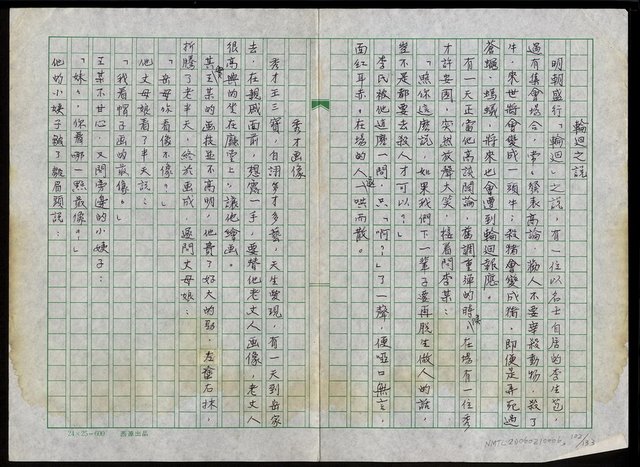 輪迴之說
明朝盛行「輪迴」之說，有一位以名士自居的李生茝，
過有集會場合，常發表高論，勸人不要宰殺動物，殺了
牛，來世將會變成一頭牛；殺豬會變成豬，即使是弄死過
蒼蠅、螞蟻，將來也會遭到輪迴報應。
有一天正當他高談闊論，舊調重彈的時候，在場有一位秀
才許安國，突然放聲大笑，接着問李某：
「照你這麼說，如果我們下一輩子要再脫生做人的話，
豈不是都要去殺人才可以？」
李氏被他這麼一問，只「啊？」了一聲，便啞口無言，
面紅耳赤。在場的人遂哄而散。
秀才画像
秀才王三寶，自詡年才多藝，天生發現，有一天到岳家
去，在親戚面前，想露一手，要替他老丈人画像，老丈人
很高興的坐在廳堂上，讓他繪画。
其實王某的画技並不高明，他費了好大的勁，左奮右抹，
折騰了老半天，終於画成，遂問丈母娘：
「岳母你看像不像？」
他丈母娘看了半天說：
「我看帽子画的最像。」
王某不甘心，又問旁邊的小姨子：
「妹，你看哪一點最像？」
他的小姨子皺了皺眉頭說：
24×25=600 西源出品
NMTL20060210006
102/133